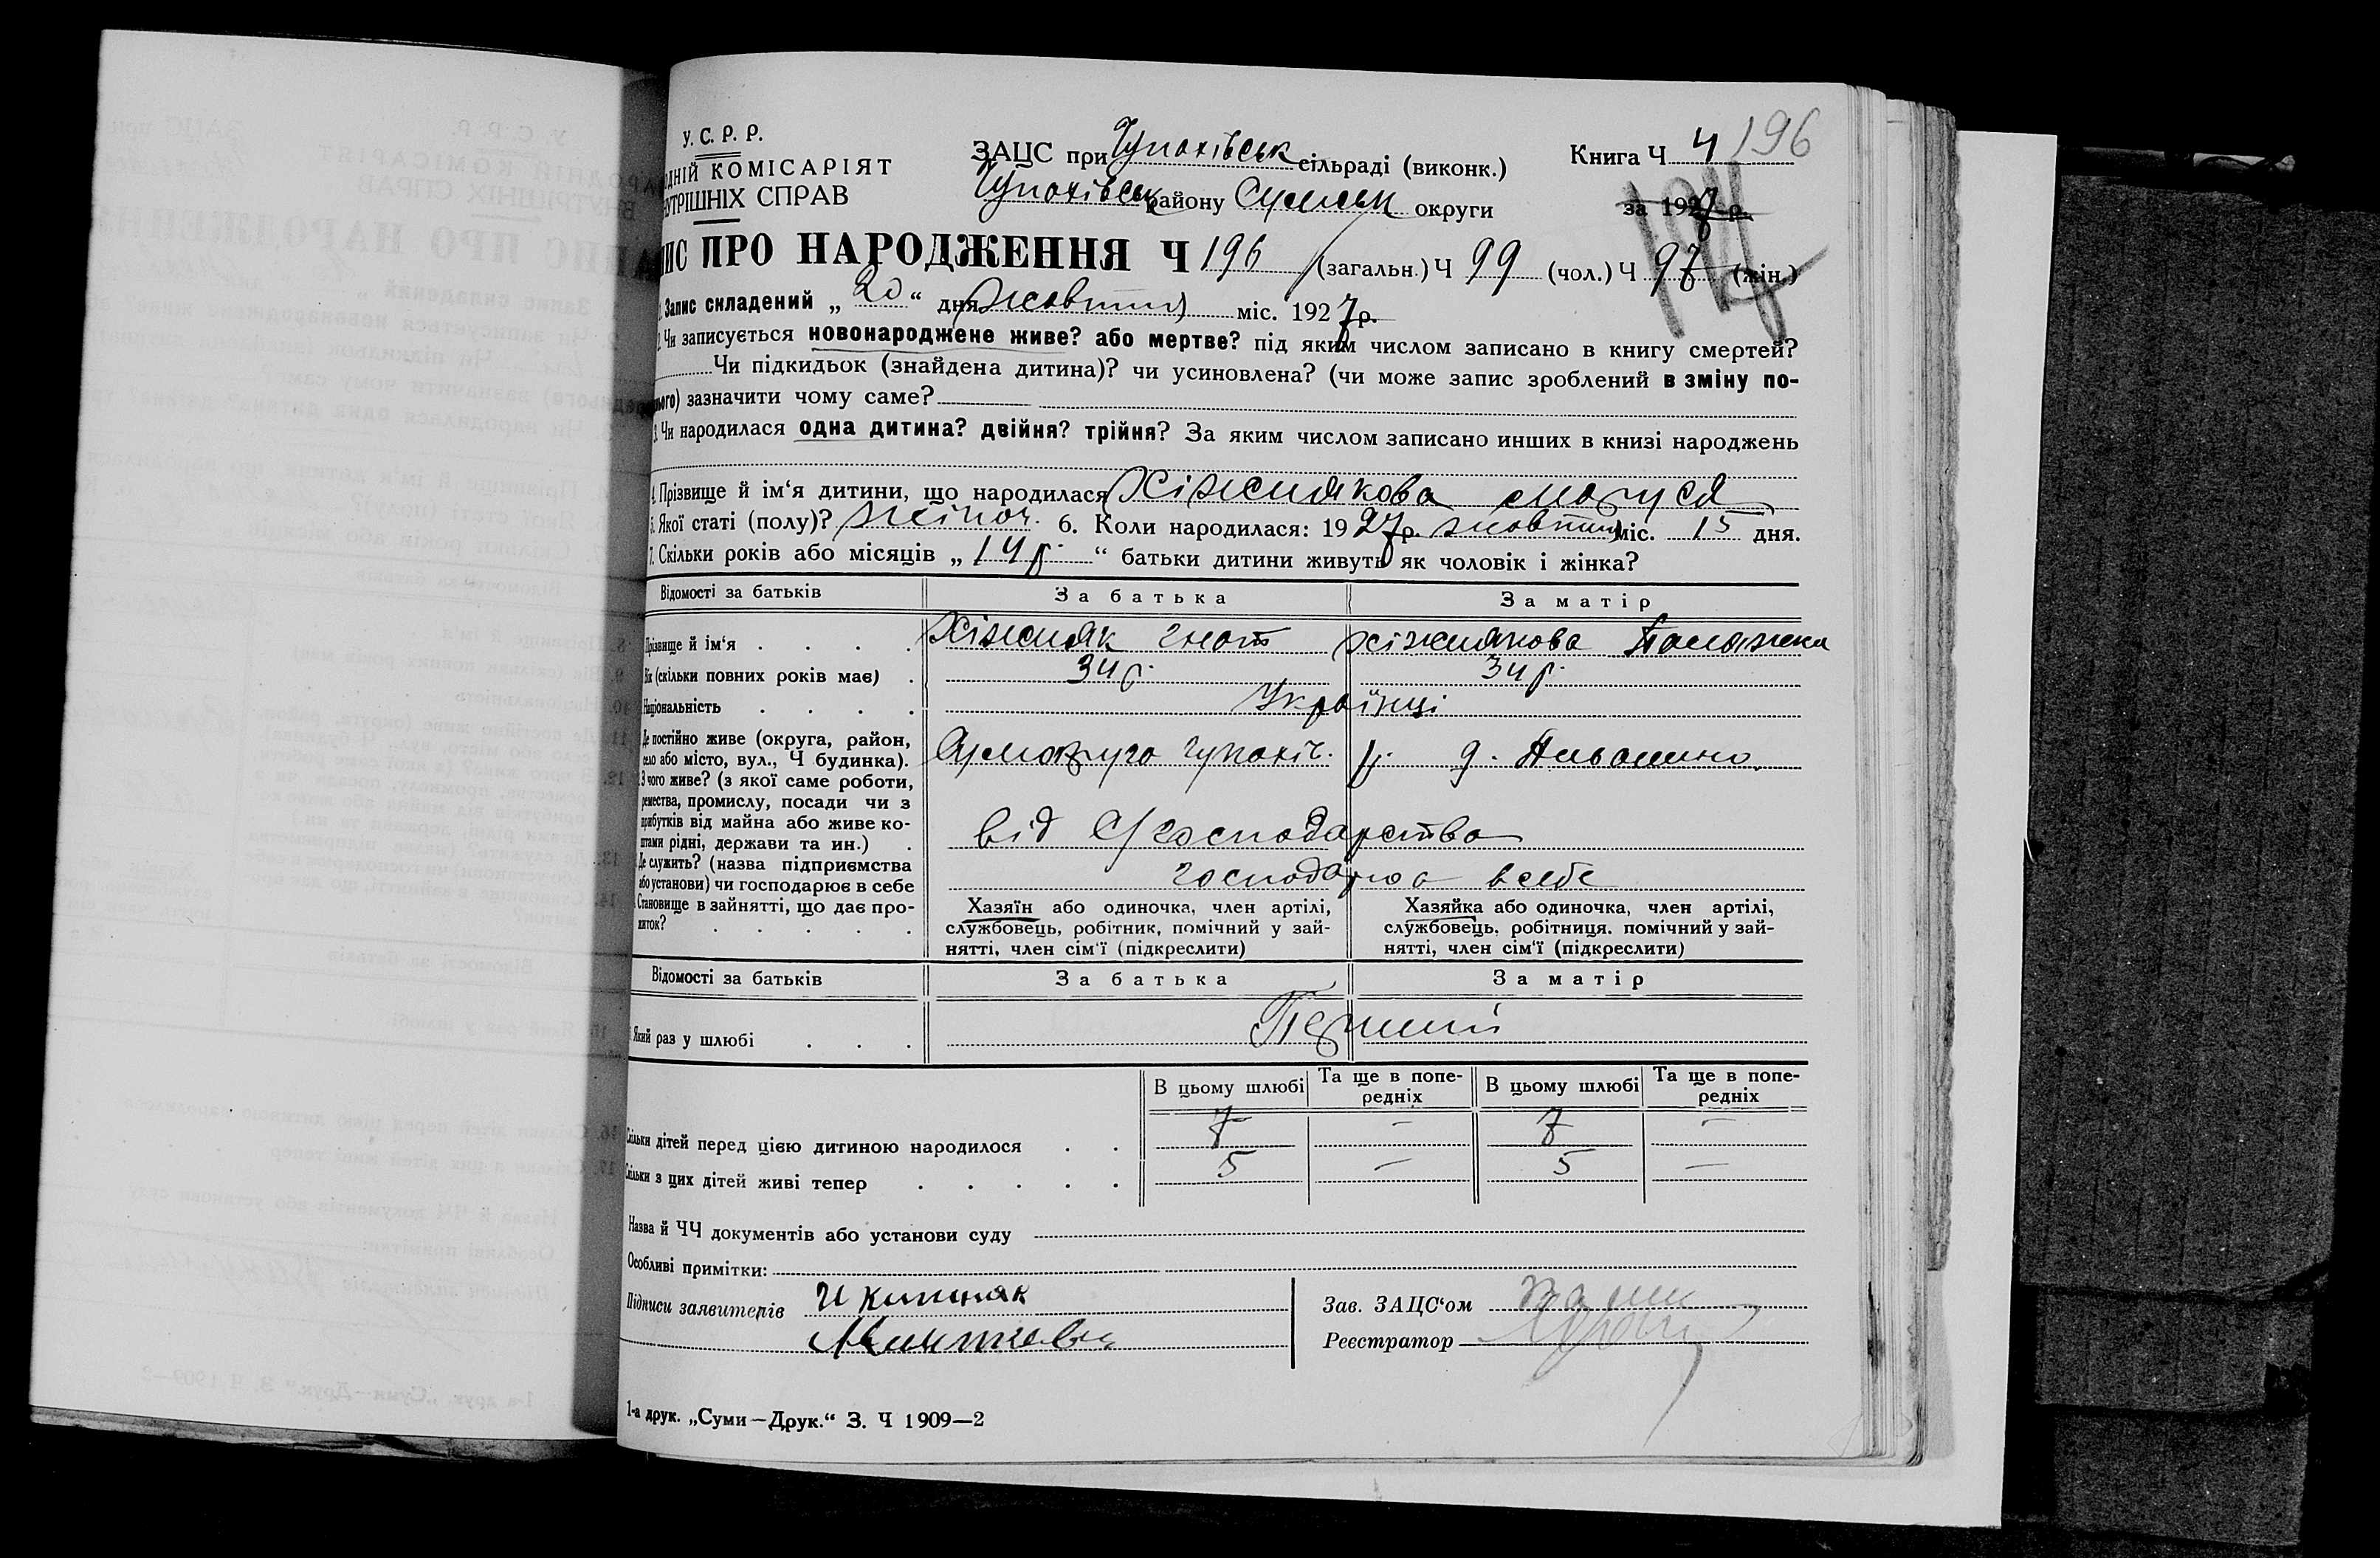 У. С. Р. Р.
ДНІЙ КОМІСАРІЯТ
УТРІШНІХ СПРАВ
ЗАЦС при Чупахівськ сільраді (виконк.)
Чупахівськ району Сумськ округи
Книга Ч 4 196
за 1927 р.
ИС ПРО НАРОДЖЕННЯ Ч 196 (загальн.) Ч 99 (чол.) Ч 97 (жін.)
1. Запис складений „ 20 “ дня жовтня міс. 1927 р.
2. Чи записується новонароджене живе? або мертве? під яким числом записано в книгу смертей?
Чи підкидьок (знайдена дитина)? чи усиновлена? (чи може запис зроблений в зміну по-
ього) зазначити чому саме?
3. Чи народилася одна дитина? двійня? трійня? За яким числом записано инших в книзі народжень
4. Прізвище й ім‘я дитини, що народилася Хіжнякова Маруся
5. Якої статі (полу)? жіноч. 6. Коли народилася: 1927 р. жовтня міс. 15 дня.
7. Скільки років або місяців „ 14 р. “ батьки дитини живуть як чоловік і жінка?
Відомості за батьків За батька За матір
Прізвище й ім‘я Хіжняк Гнат Хіжнякова Палажка
Вік (скільки повних років має) 34 р. 34 р.
Національність Українці
Де постійно живе (округа, район,
село або місто, вул., Ч будинка). Сумокруга Чупахів. р. д.
З чого живе? (з якої саме роботи,
ремества, промислу, посади чи з
прибутків від майна або живе ко-
штами рідні, держави та ин.) від С/господарства
Де служить? (назва підприємства
або установи) чи господарює в себе господарює в себе
Становище в зайнятті, що дає про-
житок?
Хазяїн або одиночка, член артілі,
службовець, робітник, помічний у зай-
нятті, член сім‘ї (підкреслити)
Хазяйка або одиночка, член артілі,
службовець, робітниця, помічний у зай-
нятті, член сім‘ї (підкреслити)
Відомості за батьків За батька За матір
Який раз у шлюбі Перший
В цьому шлюбі Та ще в попе-
редніх В цьому шлюбі Та ще в попе-
редніх
Скільки дітей перед цією дитиною народилося 7 — 7 —
Скільки з цих дітей живі тепер 5 — 5 —
Назва й ЧЧ документів або установи суду
Особливі примітки:
Підписи заявителів
Зав. ЗАЦС‘ом
Реєстратор
1-а друк. „Суми—Друк.“ З. Ч 1909—2